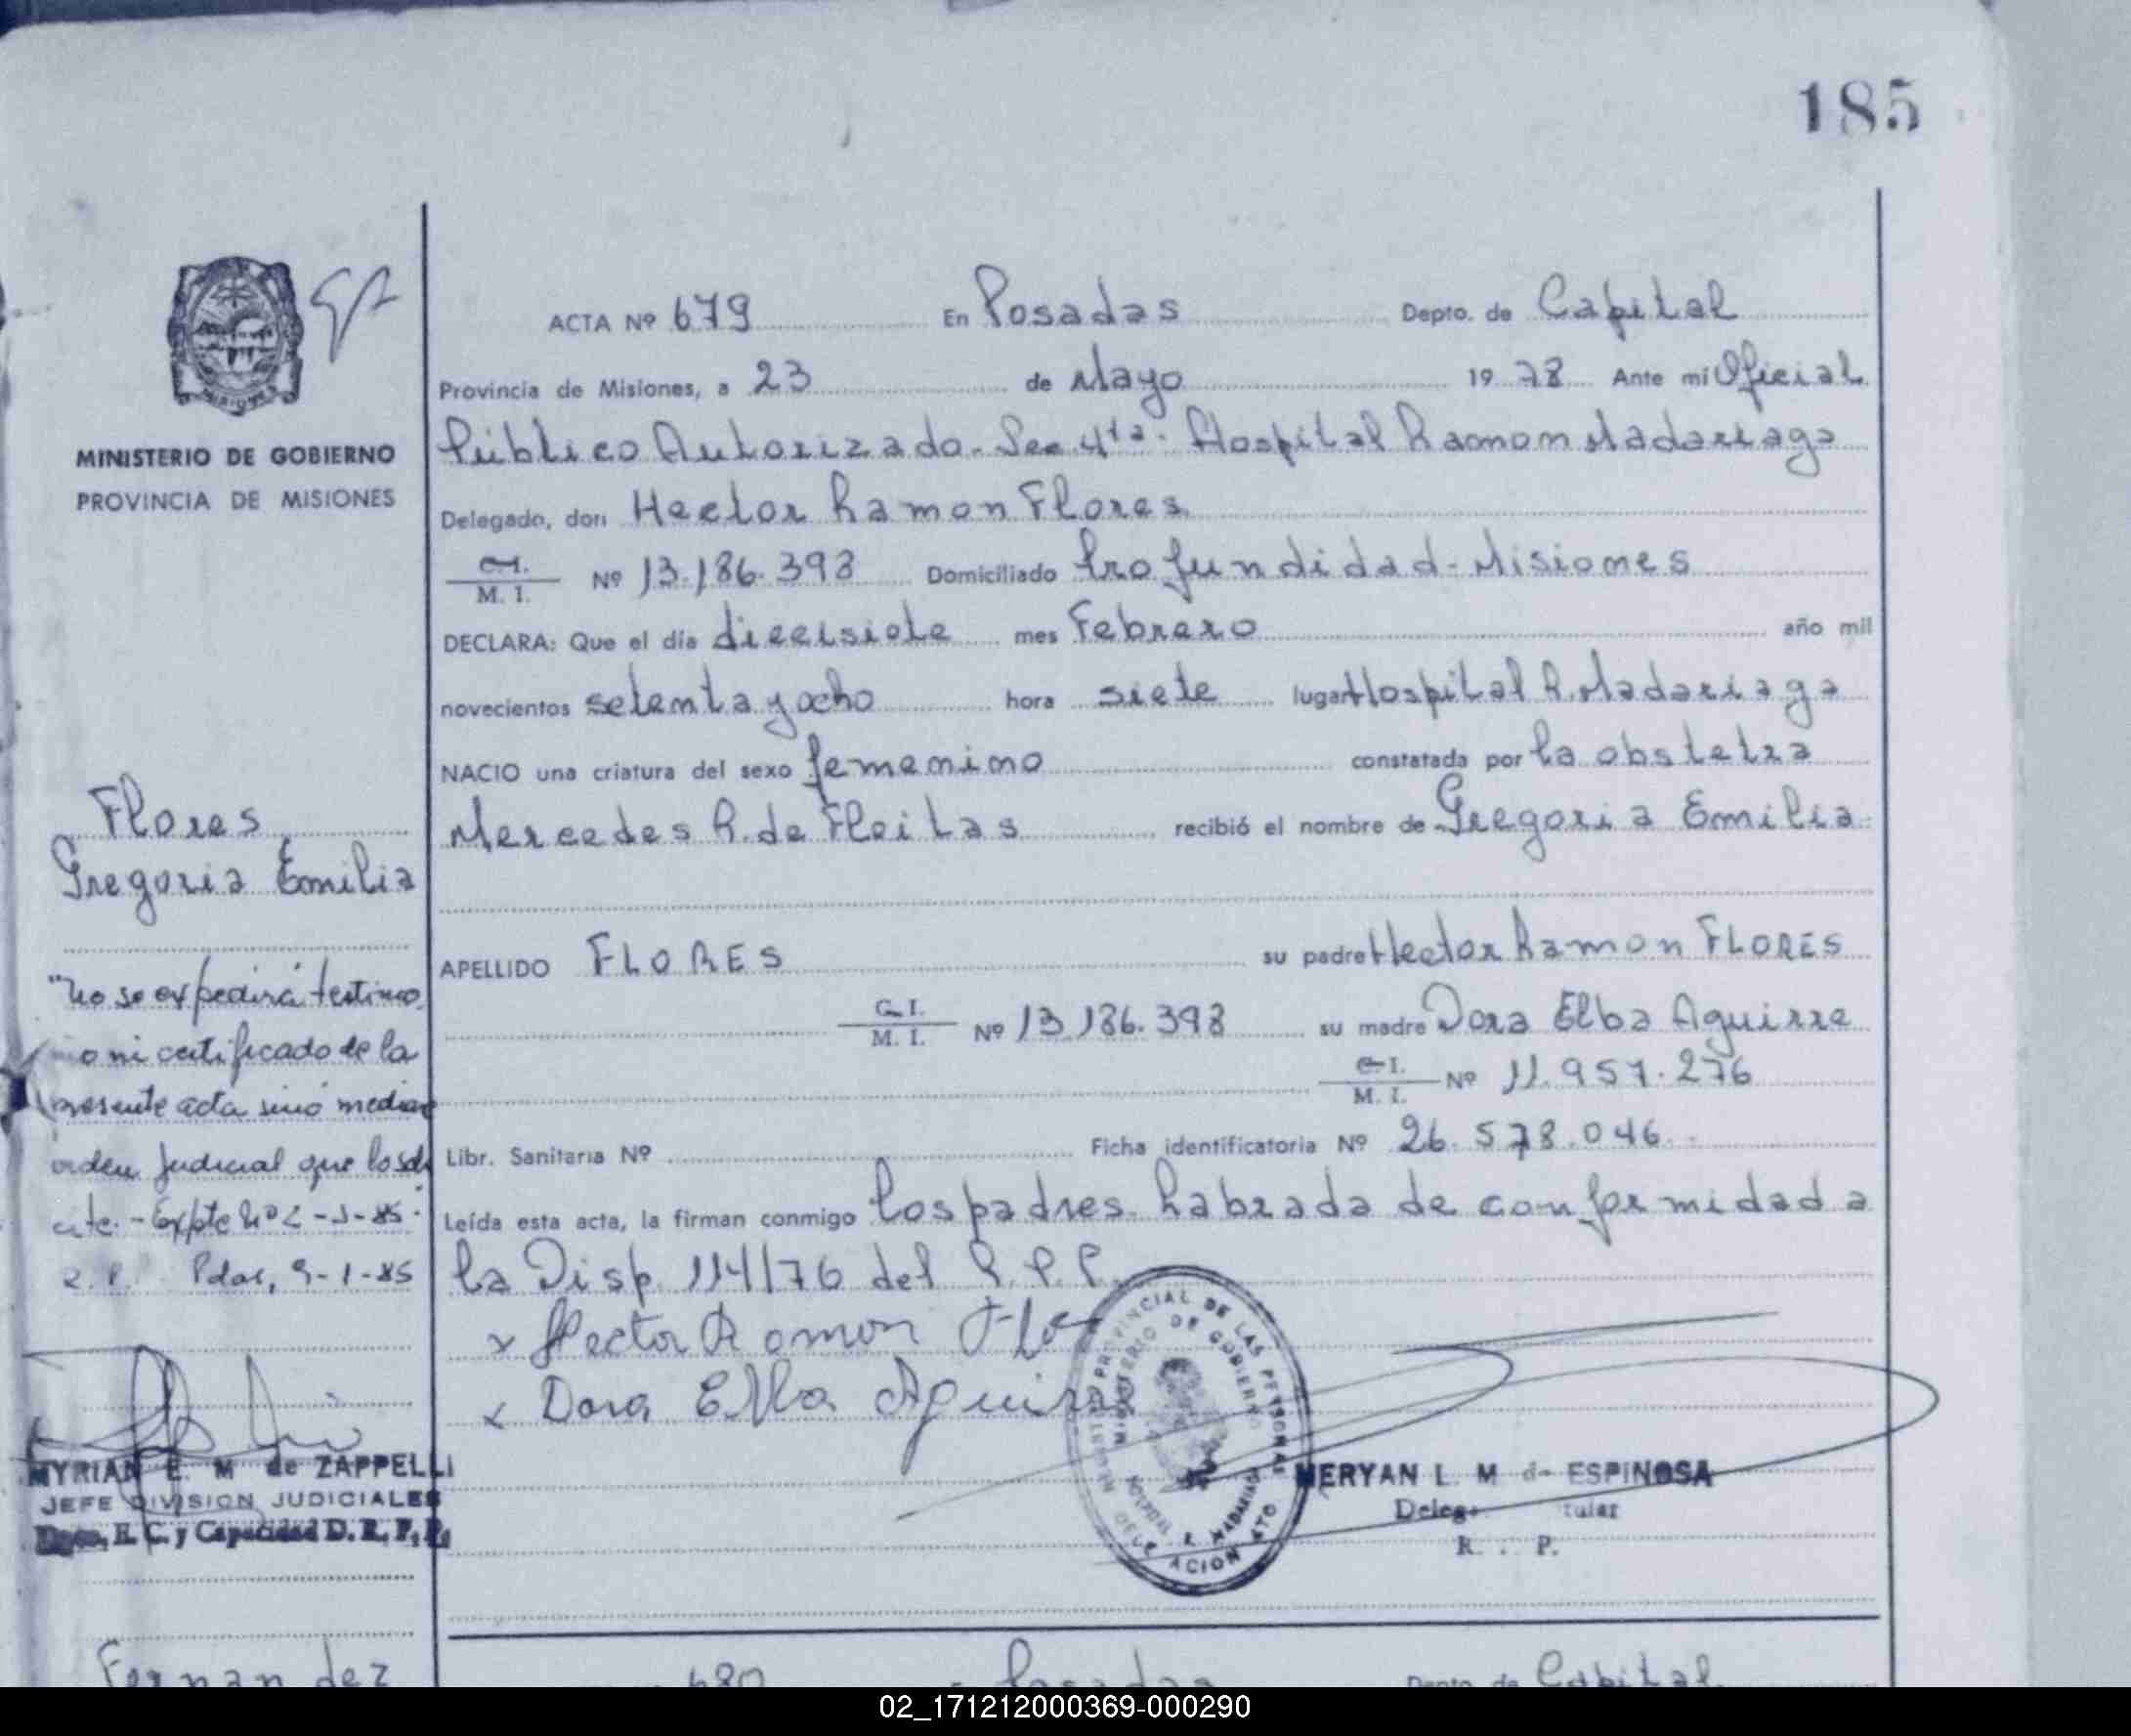 185
MINISTERIO DE GOBIERNO
PROVINCIA DE MISIONES
ACTA Nº 679 En Posadas Depto. de Capital
Provincia de Misiones, a 23 de Mayo 19 78 Ante mi Oficial
Público Autorizado - Sec 4ta. Hospital Ramon Madariaga
Delegado, don Hector Ramon Flores
C.I. / M. I. Nº 13.186.398 Domiciliado Profundidad - Misiones
DECLARA: Que el día diecisiete mes Febrero año mil
novecientos setenta y ocho hora siete lugar Hospital R. Madariaga
NACIO una criatura del sexo femenino constatada por la obstetra
Mercedes R. de Fleitas recibió el nombre de Gregoria Emilia
APELLIDO FLORES su padre Hector Ramon FLORES
C.I. / M. I. Nº 13.186.398 su madre Dora Elba Aguirre
C.I. / M. I. Nº 11.957.276
Libr. Sanitaria Nº Ficha identificatoria Nº 26.578.046
Leída esta acta, la firman conmigo los padres. Labrada de conformidad a
la Disp. 114/76 del R.P.P.
x Hector Ramon Flo
x Dora Elba Aguirre
MERYAN L. M de ESPINOSA
R. P.
PROVINCIAL DE LAS PERSONAS
MINISTERIO DE GOBIERNO
HOSPITAL R. MADARIAGA
Flores
Gregoria Emilia
"No se expedirá testimo
o ni certificado de la
presente acta sinó median
orden judicial que lo soli
cite. - Expte Nº
R.P. Pdas, 9-1-85
MYRIAN E. M de ZAPPELLI
JEFE DIVISION JUDICIALES
E. C. y Capacidad D. R. P. P.
Fernandez
680 Posadas Depto de Capital
02_171212000369-000290